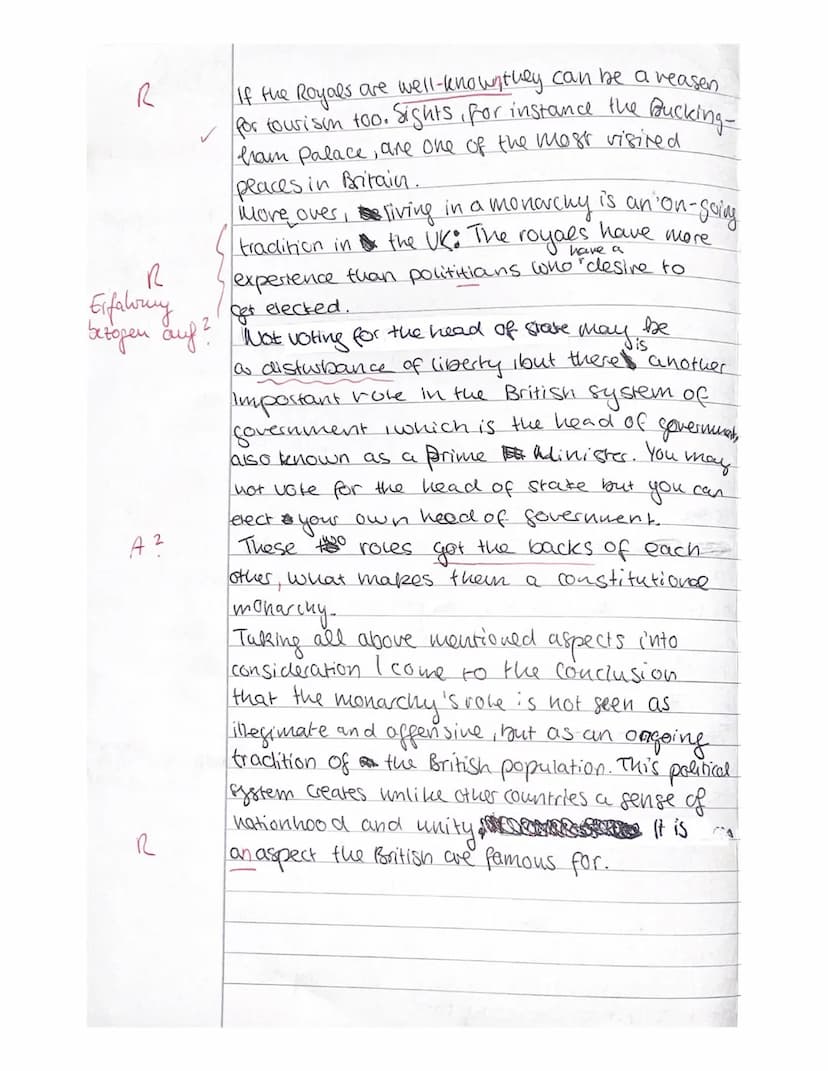 R
If the Royals are well-known, they can be a reason
✓ for tourism too. Sights, for instance the Bucking-
ham Palace, are one of the most visited
places in Britain.
More over, living in a monarchy is an on-going
tradition in the UK: The royals have more
have a
R experience than polititians who desire to
Erfahrung get elected.
bezogen auf? Not voting for the head of state may be
is
a disturbance of liberty, but there another
important role in the British system of
government, which is the head of government,
also known as a Prime Minister. You may
not vote for the head of state but you can
elect your own head of government.
A? These two roles got the backs of each
other, what makes them a constitutional
monarchy.
Taking all above mentioned aspects into
consideration I come to the conclusion
that the monarchy's role is not seen as
illegimate and offensive, but as an ongoing
tradition of the British population. This political
system creates unlike other countries a sense of
nationhood and unity. It is
R an aspect the British are famous for.